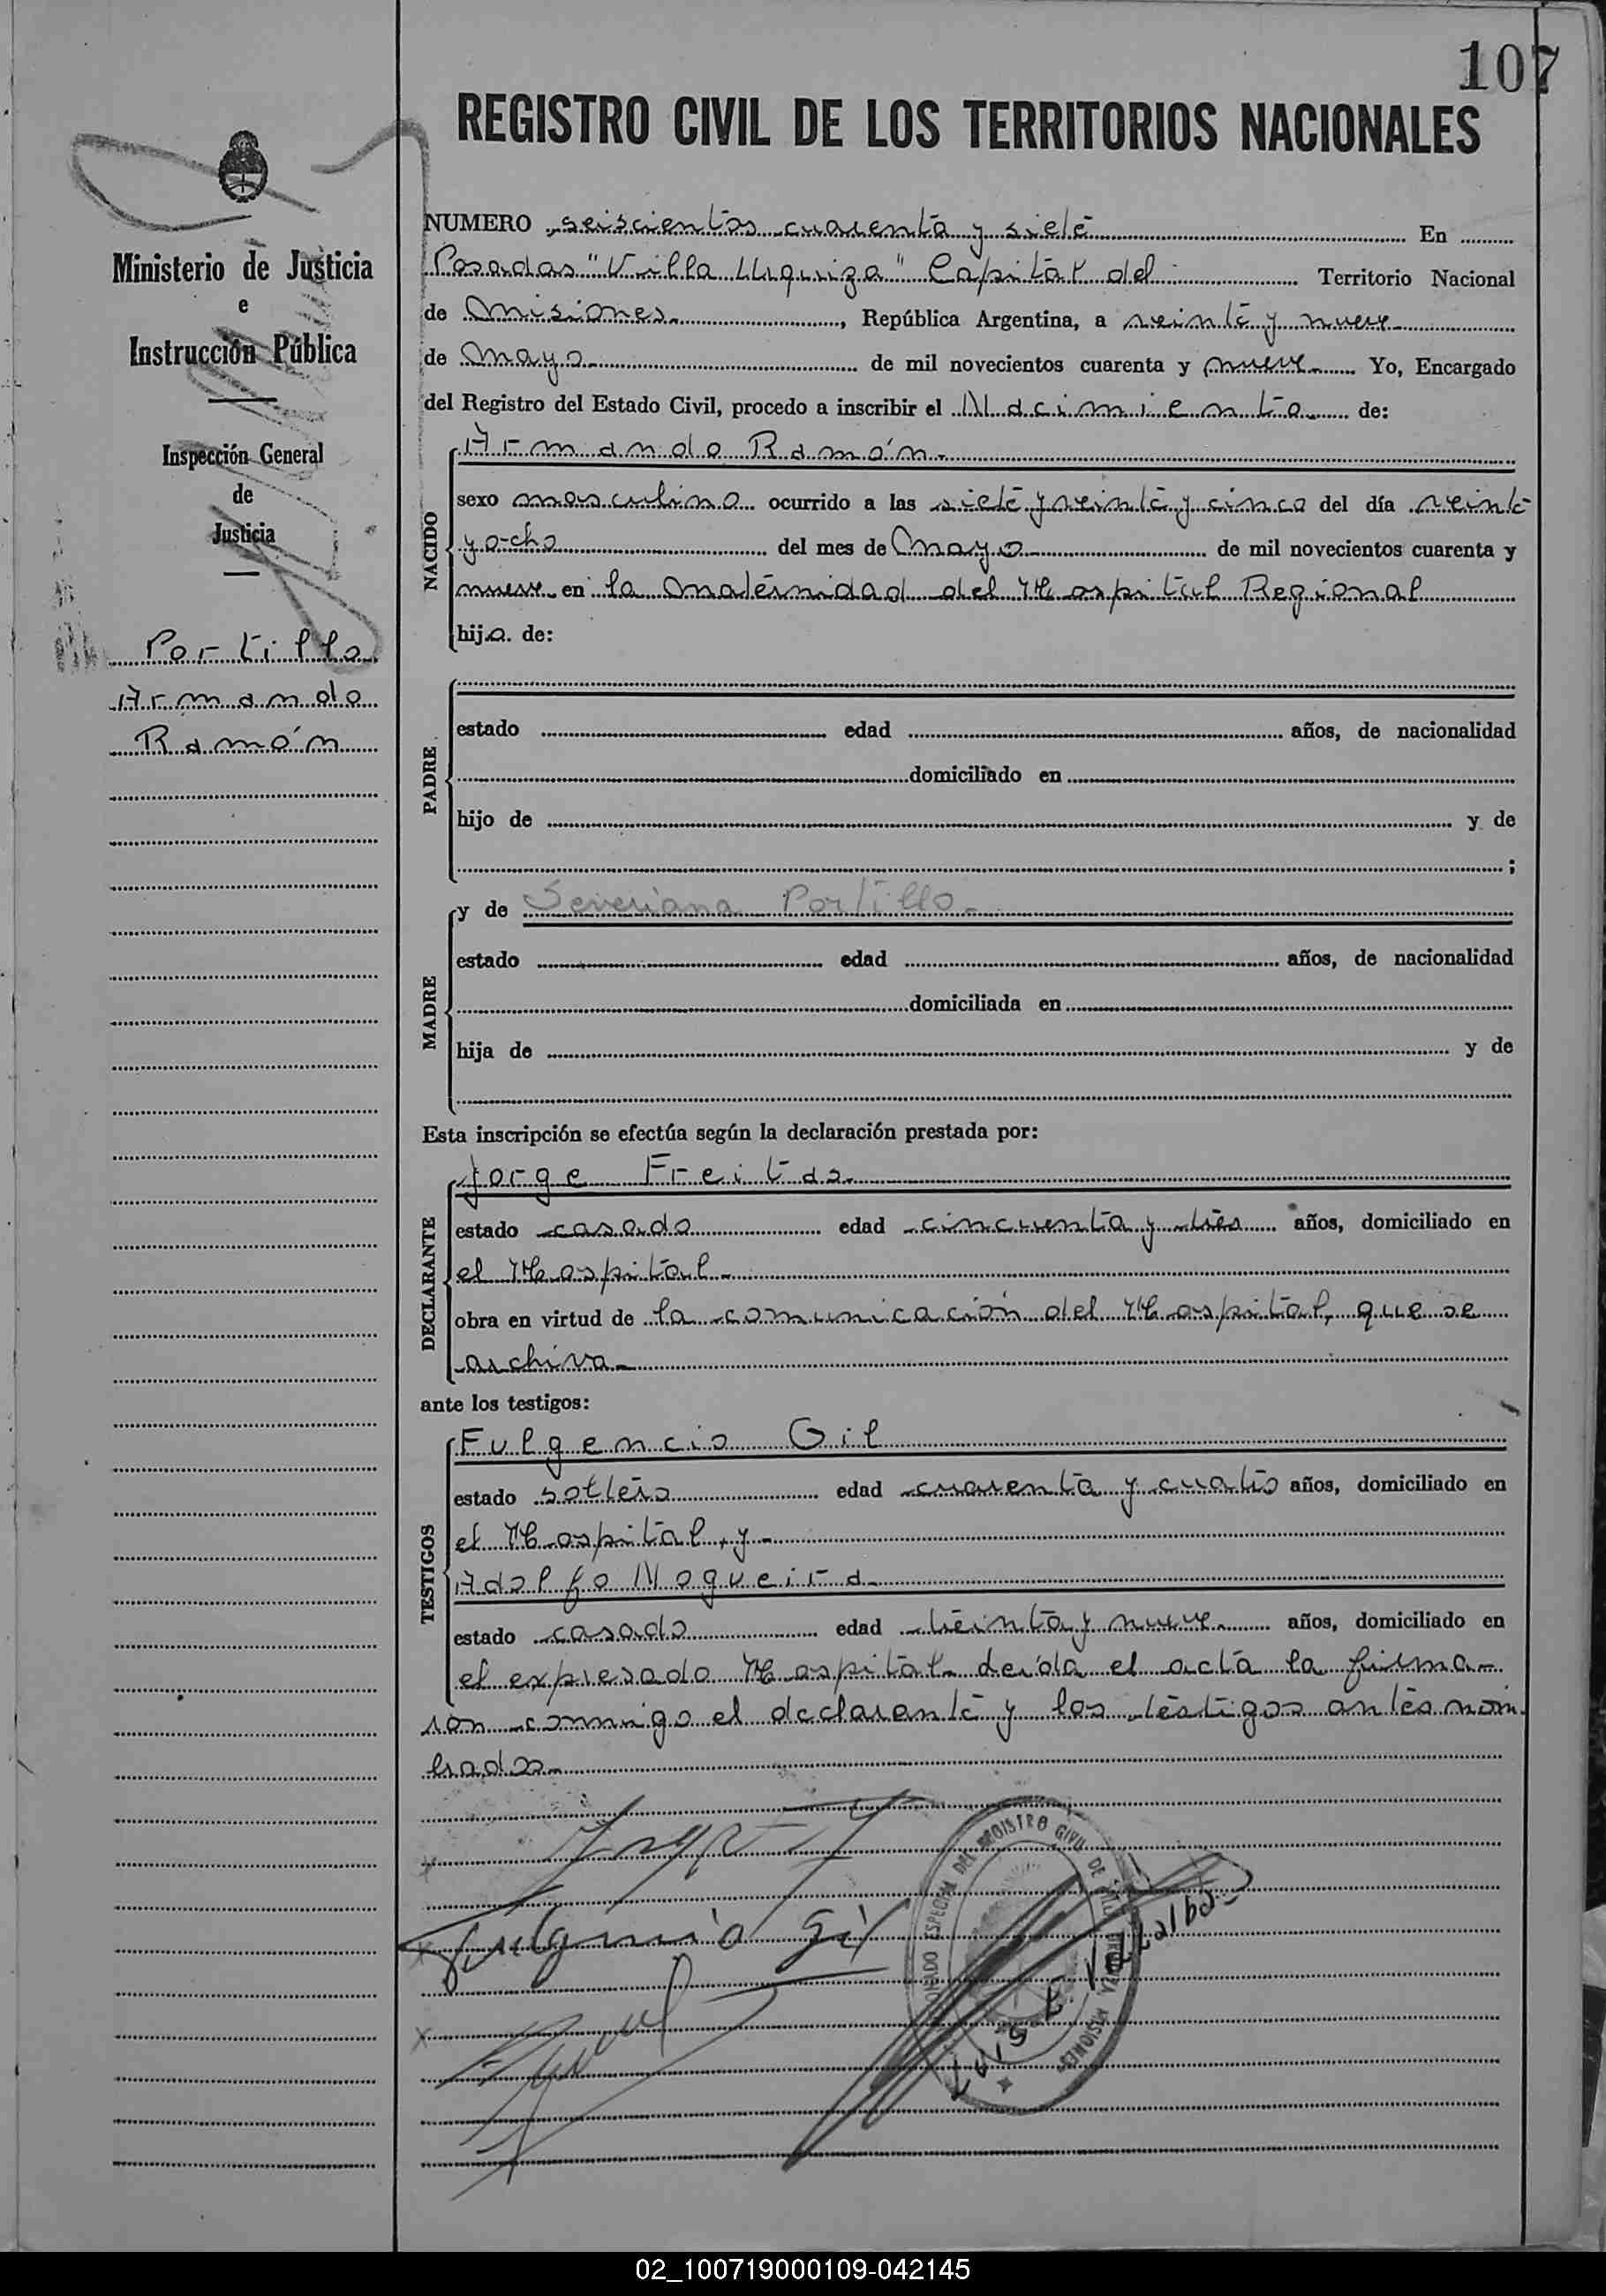 107
REGISTRO CIVIL DE LOS TERRITORIOS NACIONALES
Ministerio de Justicia
e
Instrucción Pública
Inspección General
de
Justicia
Portillo
Armando
Ramón
NUMERO seiscientos cuarenta y siete En
Posadas "Villa Urquiza" Capital del Territorio Nacional
de Misiones, República Argentina, a veinte y nueve
de Mayo de mil novecientos cuarenta y nueve. Yo, Encargado
del Registro del Estado Civil, procedo a inscribir el Nacimiento de:
NACIDO
Armando Ramón.
sexo masculino ocurrido a las siete y veinte y cinco del día veinte
y ocho del mes de Mayo de mil novecientos cuarenta y
nueve en la Maternidad del Hospital Regional
hijo de:
PADRE
estado edad años, de nacionalidad
domiciliado en
hijo de y de
;
MADRE
y de Severiana Portillo.
estado edad años, de nacionalidad
domiciliada en
hija de y de
Esta inscripción se efectúa según la declaración prestada por:
DECLARANTE
Jorge Freitas.
estado casado edad cincuenta y tres años, domiciliado en
el Hospital.
obra en virtud de la comunicación del Hospital, que se
archiva.
ante los testigos:
TESTIGOS
Fulgencio Gil
estado soltero edad cuarenta y cuatro años, domiciliado en
el Hospital, y
Adolfo Nogueira.
estado casado edad treinta y nueve años, domiciliado en
el expresado Hospital. Leída el acta la firma-
ron conmigo el declarante y los testigos antes nom-
brados.
Fulgencio Gil
REGISTRO CIVIL DE
MISIONES
Luis E. Villalba
02_100719000109-042145